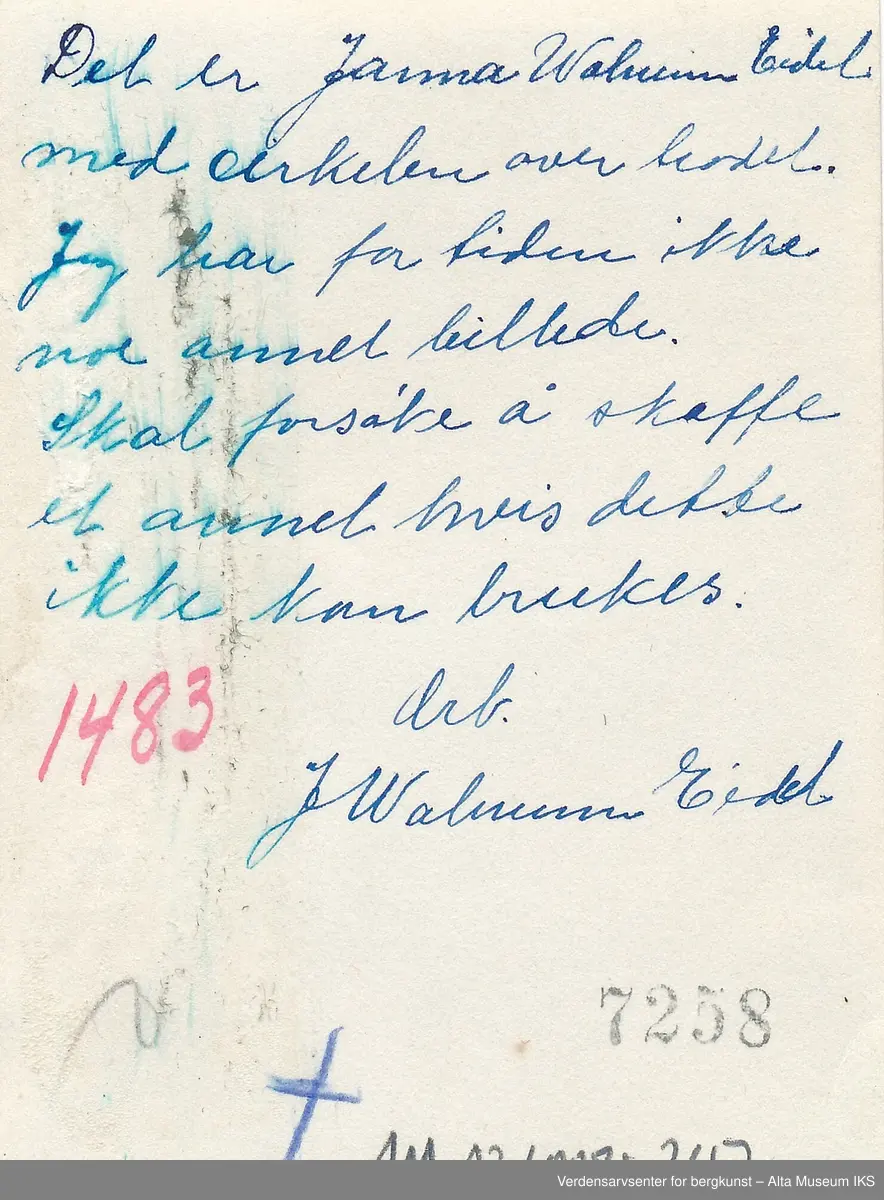 Det er Janna Walnum Eidel
med cirkelen over hodet.
Jeg har for tiden ikke
noe annet billede.
Skal forsøke å skaffe
et annet hvis dette
ikke kan brukes.
Arb.
J Walnum Eidel
1483
7258
Verdensarvsenter for bergkunst – Alta Museum IKS